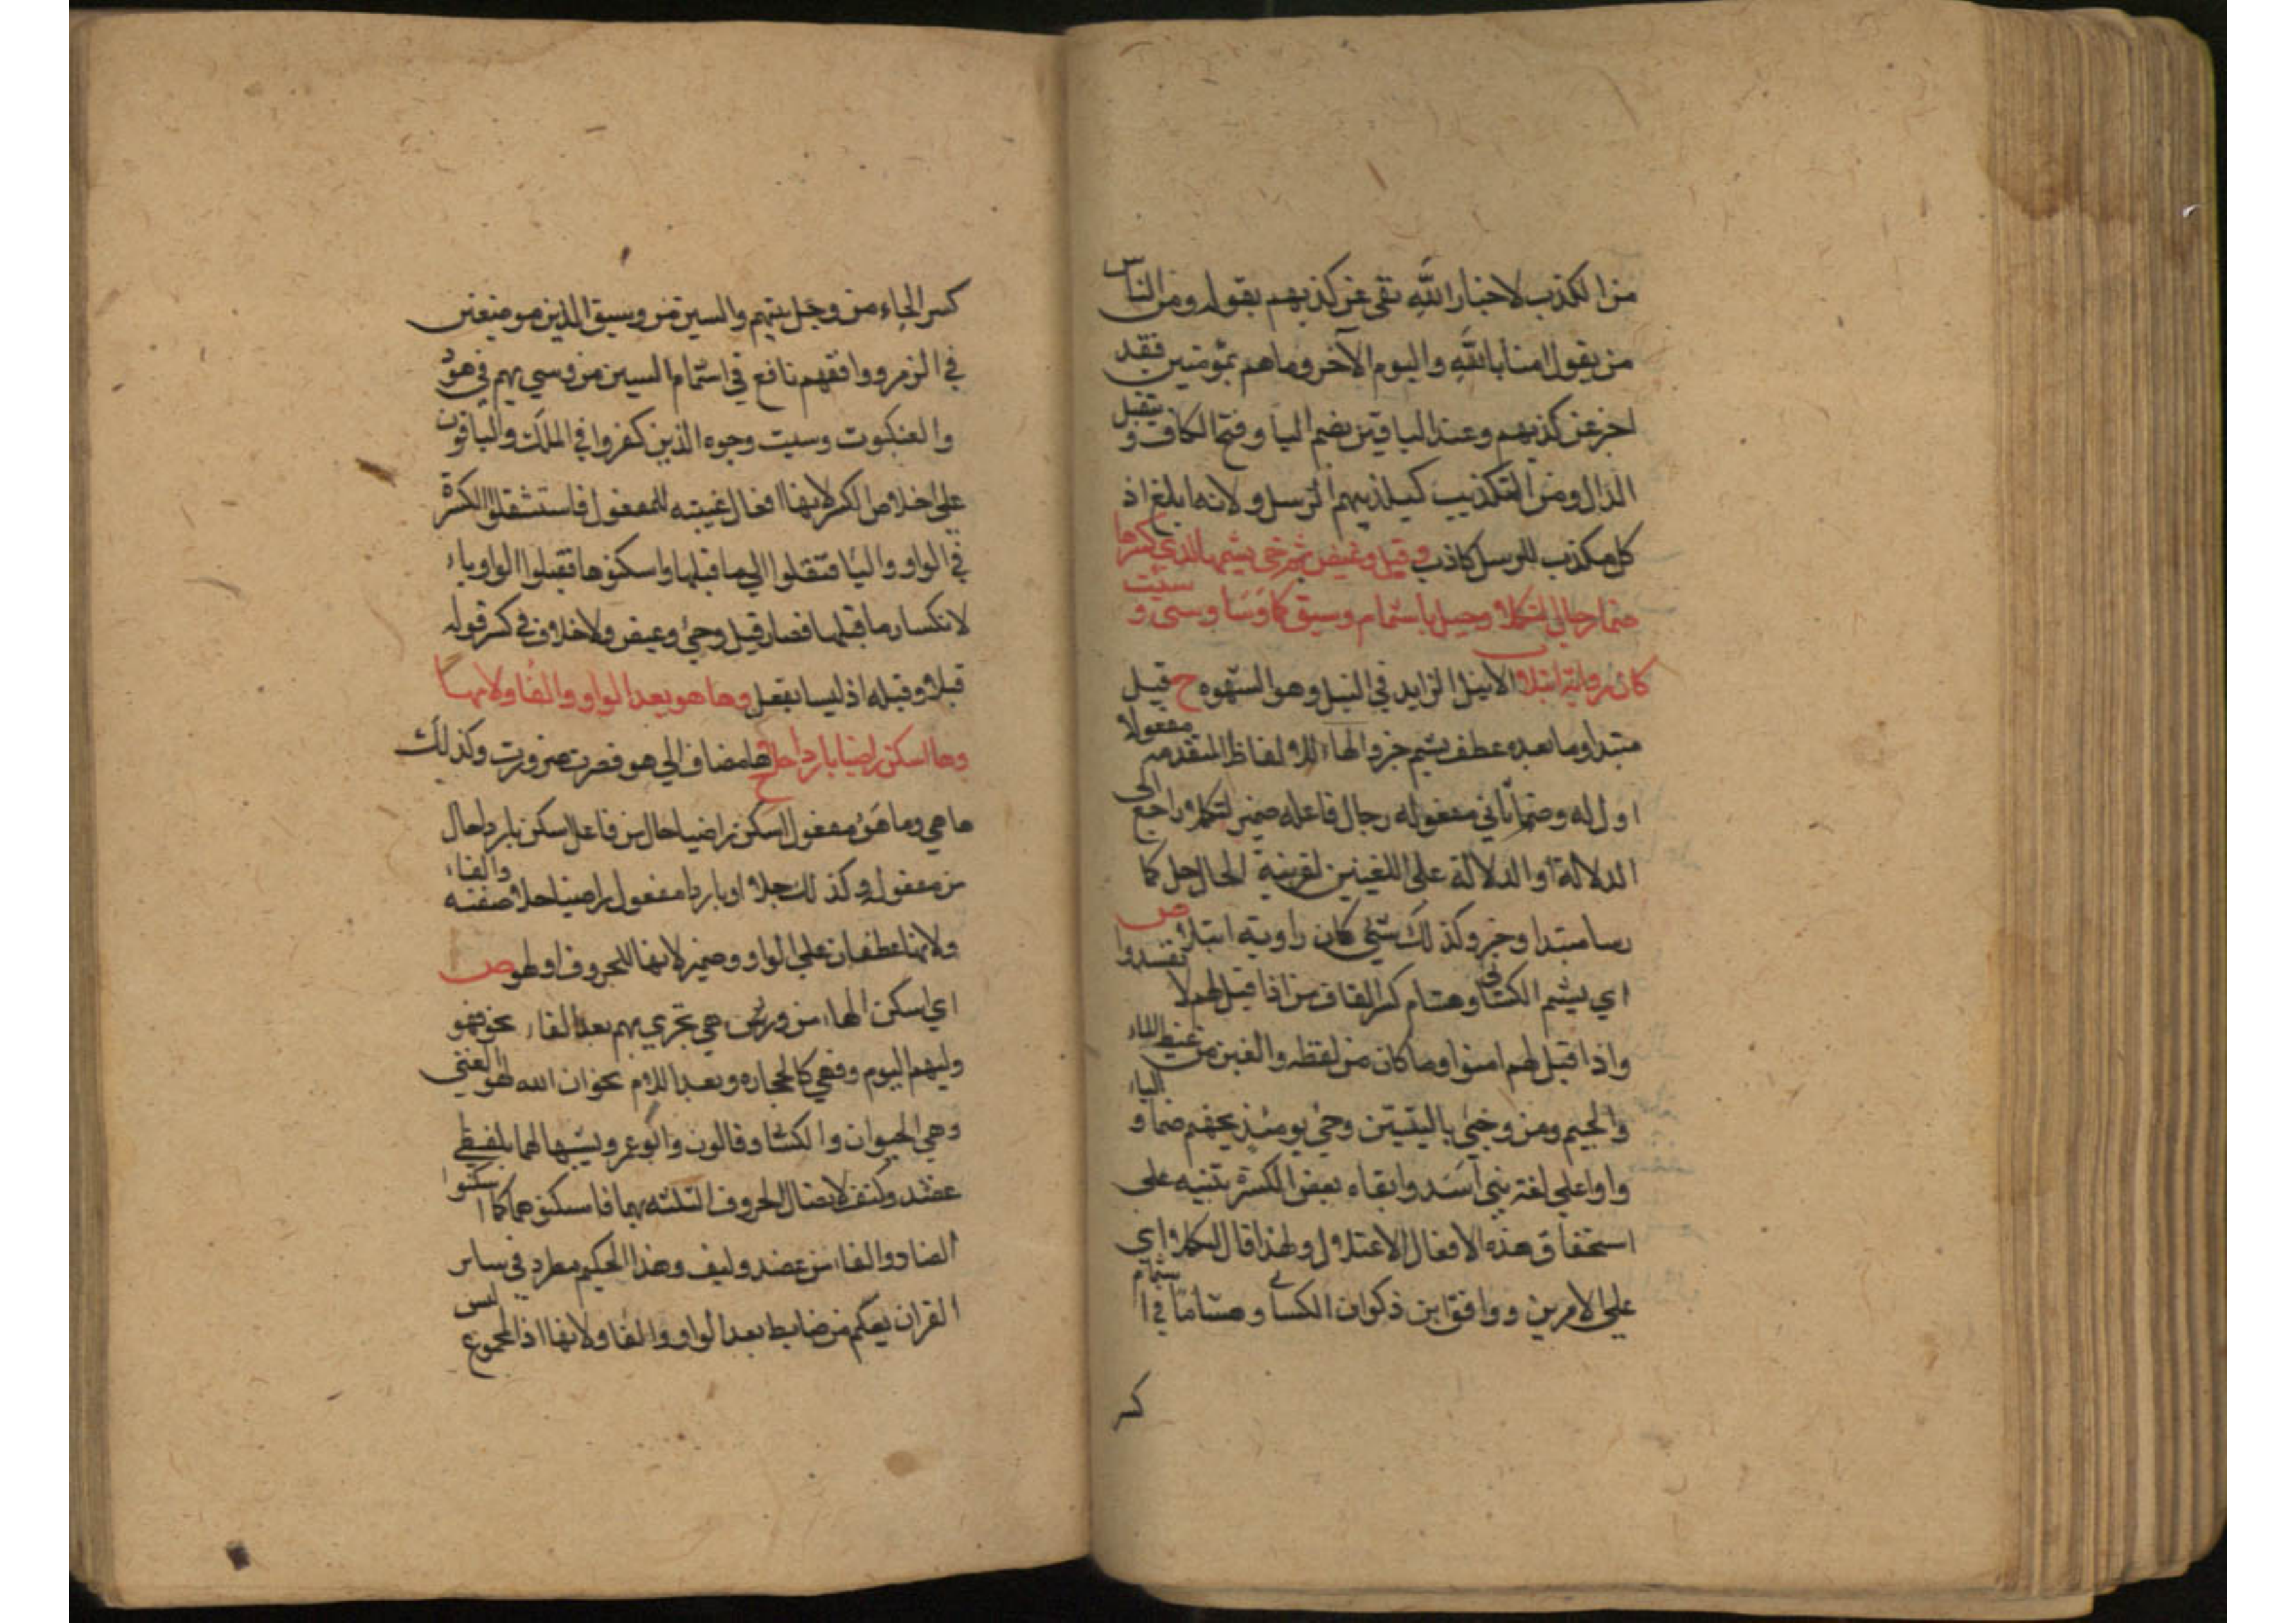 من الكذب لاخبار الله تعى عن كذبهم بقوله ومن الناس
من يقول امنا بالله واليوم الآخر وما هم بمؤمنين فقد
اخبر عن كذبهم وعند الباقين بضم اليا وفتح الكاف و تثقيل
الذال ومن التكذيب لتكذيبهم الرسل ولانه ابلغ اذ
كل مكذب للرسل كاذب وقيل وغيض ثم جئ يشمها لدى كسرها
ضما رجال لتكملا وحيل باشمام وسيق كما رسا وسئ و سيئت
كان راويه انبلا الانبل الزايد في النبل وهو الشهوه ح قيل
مبتدا وما بعده عطف يشم خبر والهاء للالفاظ المتقدمه مفعولا
اول له وضما ثاني مفعوله رجال فاعله ضمير لتكملا راجع الى
الدلالة او الدلالة على اللغتين لقرينة الحال حل كما
رسا مبتدا وخبر وكذلك سئ كان راويه انبلا ص
اي يشم الكسائي وهشام كسر القاف من اذا قيل لهم لا تفسدوا
واذا قيل لهم امنوا وما كان من لفظه والغين من غيض الماء
والجيم ومن وجئ بالنبيين وجئ يومئذ بجهنم ضما و الياء
واوا على لغة بني اسد وابقاء بعض الكسرة تنبيه على
استحقاق هذه الافعال الاعتلال ولهذا قال لتكملا اي
على الامرين ووافق ابن ذكوان الكسائي وهشاما في اشمام
كسر
كسر الحاء من وحيل بينهم والسين من وسيق الذين موضعين
في الزمر ووافقهم نافع في اشمام السين من وسئ بهم في هود
والعنكبوت وسيت وجوه الذين كفروا في الملك والباقون
على اخلاص الكسر لانها افعال بنيته للمفعول فاستثقلوا الكسرة
في الواو واليا فنقلوا الى ما قبلها واسكنوها فقبلوا الواو ياء
لانكسار ما قبلها فصار قيل وجئ وغيض ولا خلاف في كسر قوله
قيلا وقيله اذ ليسا بفعل وها هو بعد الواو والفا ولامها
وها اسكن راضيا باردا حلا ح ها مضاف الى هو قصرت ضرورت وكذلك
ها هي وما هو مفعول اسكن راضيا حال من فاعل اسكن باردا حال
من مفعوله وكذلك حلا او باردا مفعول راضيا حلا صفته والفاء
ولامها عطفان على الواو وضمير لانها للحروف او لهو ص
اي اسكن الهاء من وهو هي تجري بهم بعد الفاء نحو فهو
وليهم اليوم وفهي كالحجاره وبعد اللام نحو ان الله لهو الغني
وهي الحيوان والكسا وقالون وابوعمر وتشبيها لهما بلفظي
عضد وكتف لاتصال الحروف الثلثه بهما فاسكنوهما كما اسكنوا
الضاد والفاء من عضد وليف وهذا الحكيم مطرد في ساير
القران يعكم من ضابط بعد الواو والفا ولانها اذ المجموع ليس